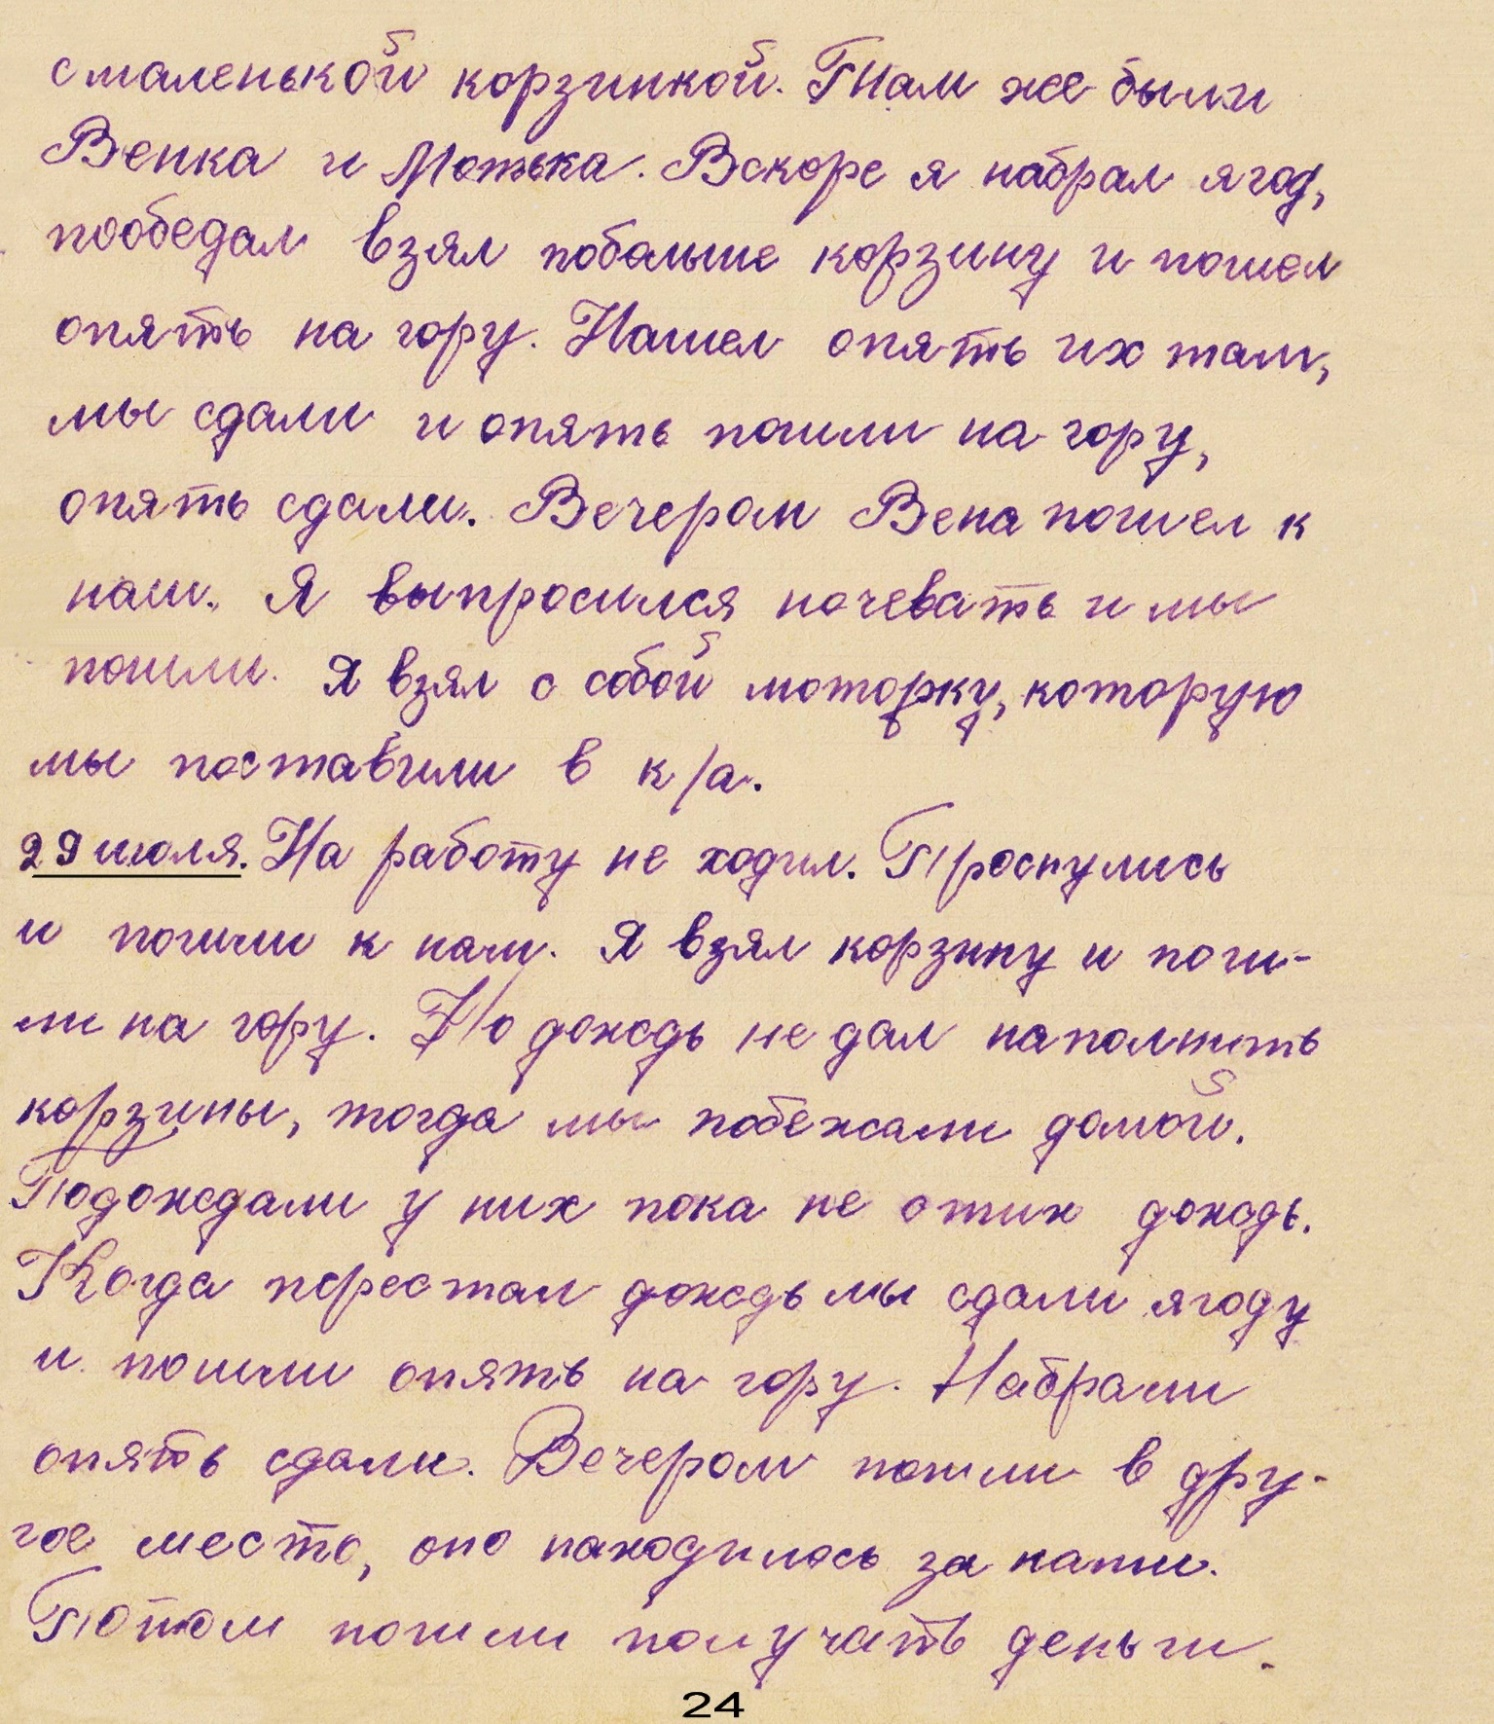 с маленькой корзинкой. Там же были
Венка и Мотька. Вскоре я набрал ягод,
пообедал взял побольше корзину и пошел
опять на гору. Нашел опять их там,
мы сдали и опять пошли на гору,
опять сдали. Вечером Вена пошел к
нам. Я выпросился ночевать и мы
пошли. Я взял с собой моторку, которую
мы поставили в к/а.
29 июля. На работу не ходил. Проснулись
и пошли к нам. Я взял корзину и пош-
ли на гору. Но дождь не дал наполнить
корзины, тогда мы побежали домой.
Подождали у них пока не стих дождь.
Когда перестал дождь мы сдали ягоду
и пошли опять на гору. Набрали
опять сдали. Вечером пошли в дру-
гое место, оно находилось за нами.
Потом пошли получать деньги.
24